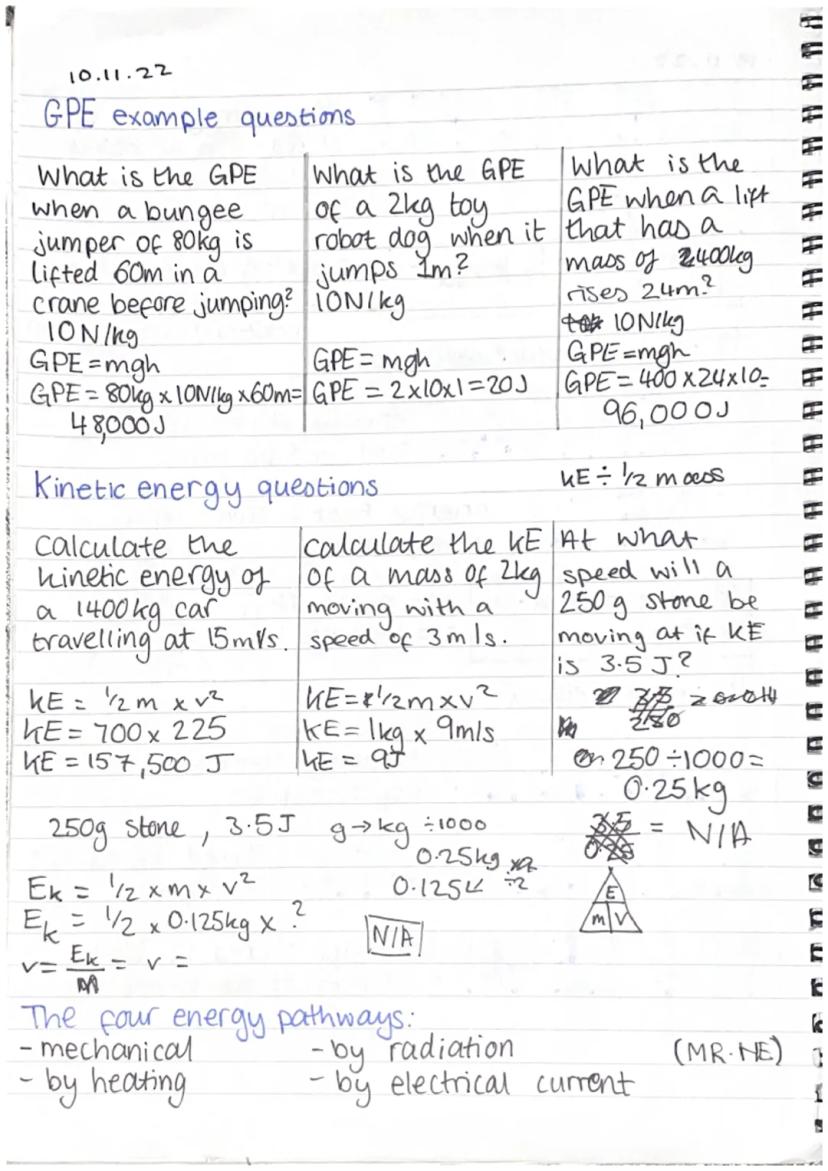 10.11.22
GPE example questions
What is the GPE
when a bungee
jumper of 80kg is
lifted 60m in a
crane before jumping?
10N/kg
GPE = mgh
GPE = 80kg x 10N/kg x 60m =
48,000J
What is the GPE
of a 2kg toy
robot dog when it
jumps 1m?
10N/kg
GPE = mgh
GPE = 2x10x1 = 20J
What is the
GPE when a lift
that has a
mass of 400kg
rises 24m?
10N/kg
GPE = mgh
GPE = 400 x 24 x 10 =
96,000J
Kinetic energy questions
KE ÷ 1/2 mass
Calculate the
kinetic energy of
a 1400kg car
travelling at 15m/s.
KE = 1/2 m x v²
KE = 700 x 225
KE = 157,500 J
Calculate the KE
of a mass of 2kg
moving with a
speed of 3m/s.
KE = 1/2 m x v²
KE = 1kg x 9m/s
KE = 9J
At what
speed will a
250g stone be
moving at if KE
is 3.5 J?
250 ÷ 1000 =
0.25kg
3.5
0.25
= N/A
E
m V
250g stone, 3.5J
g → kg ÷1000
0.25kg
0.125 ÷2
Ek = 1/2 x m x v²
Ek = 1/2 x 0.125kg x ?
v = Ek/m = v =
N/A
The four energy pathways:
- mechanical
- by heating
- by radiation
- by electrical current
(MR.HE)